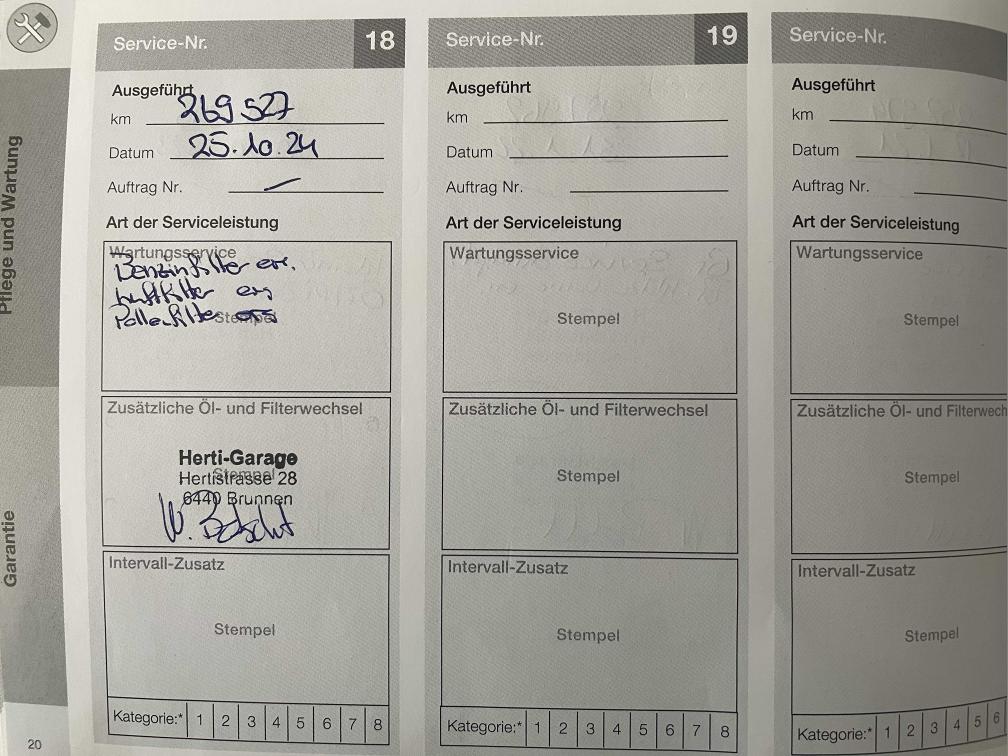 Pflege und Wartung
Garantie
Service-Nr. 18
Ausgeführt
km 269 527
Datum 25.10.24
Auftrag Nr. —
Art der Serviceleistung
Wartungsservice
Benzinfilter ers.
Luftfilter ers
Pollenfilter ers
Stempel
Zusätzliche Öl- und Filterwechsel
Herti-Garage
Stempel
Hertistrasse 28
6440 Brunnen
Intervall-Zusatz
Stempel
Kategorie:* 1 2 3 4 5 6 7 8
Service-Nr. 19
Ausgeführt
km
Datum
Auftrag Nr.
Art der Serviceleistung
Wartungsservice
Stempel
Zusätzliche Öl- und Filterwechsel
Stempel
Intervall-Zusatz
Stempel
Kategorie:* 1 2 3 4 5 6 7 8
Service-Nr.
Ausgeführt
km
Datum
Auftrag Nr.
Art der Serviceleistung
Wartungsservice
Stempel
Zusätzliche Öl- und Filterwech
Stempel
Intervall-Zusatz
Stempel
Kategorie:* 1 2 3 4 5 6
20